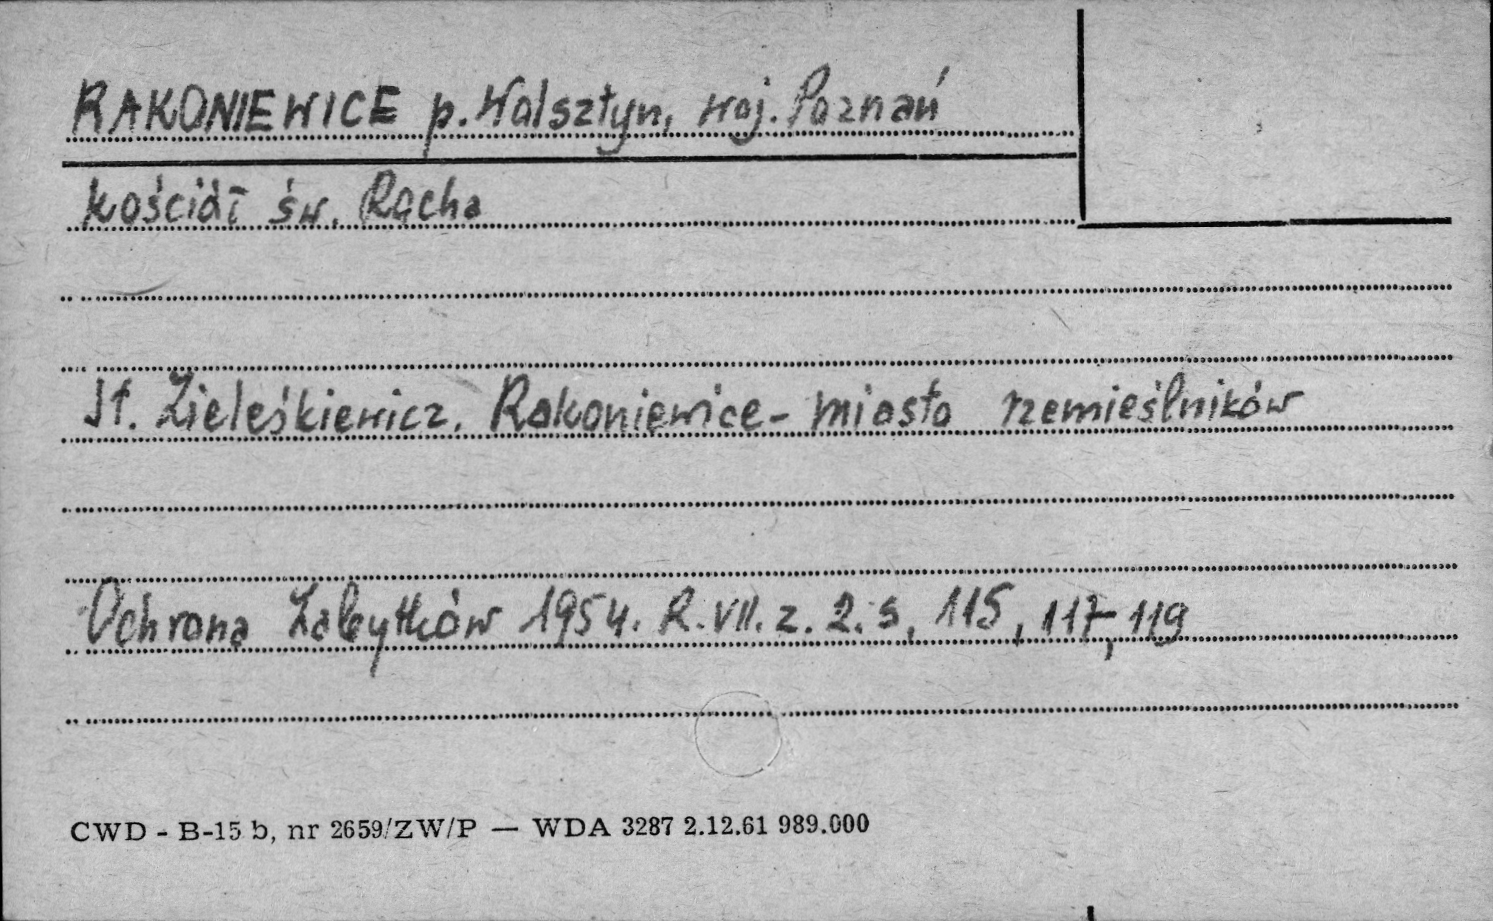 RAKONIEWICE p. Wolsztyn, woj. Poznań
kościół św. Rocha
St. Zieleśkiewicz. Rakoniewice - miasto rzemieślników
Ochrona Zabytków 1954. R. VII. z. 2. s. 115, 117, 119
CWD - B-15 b, nr 2659/ZW/P — WDA 3287 2.12.61 989.000